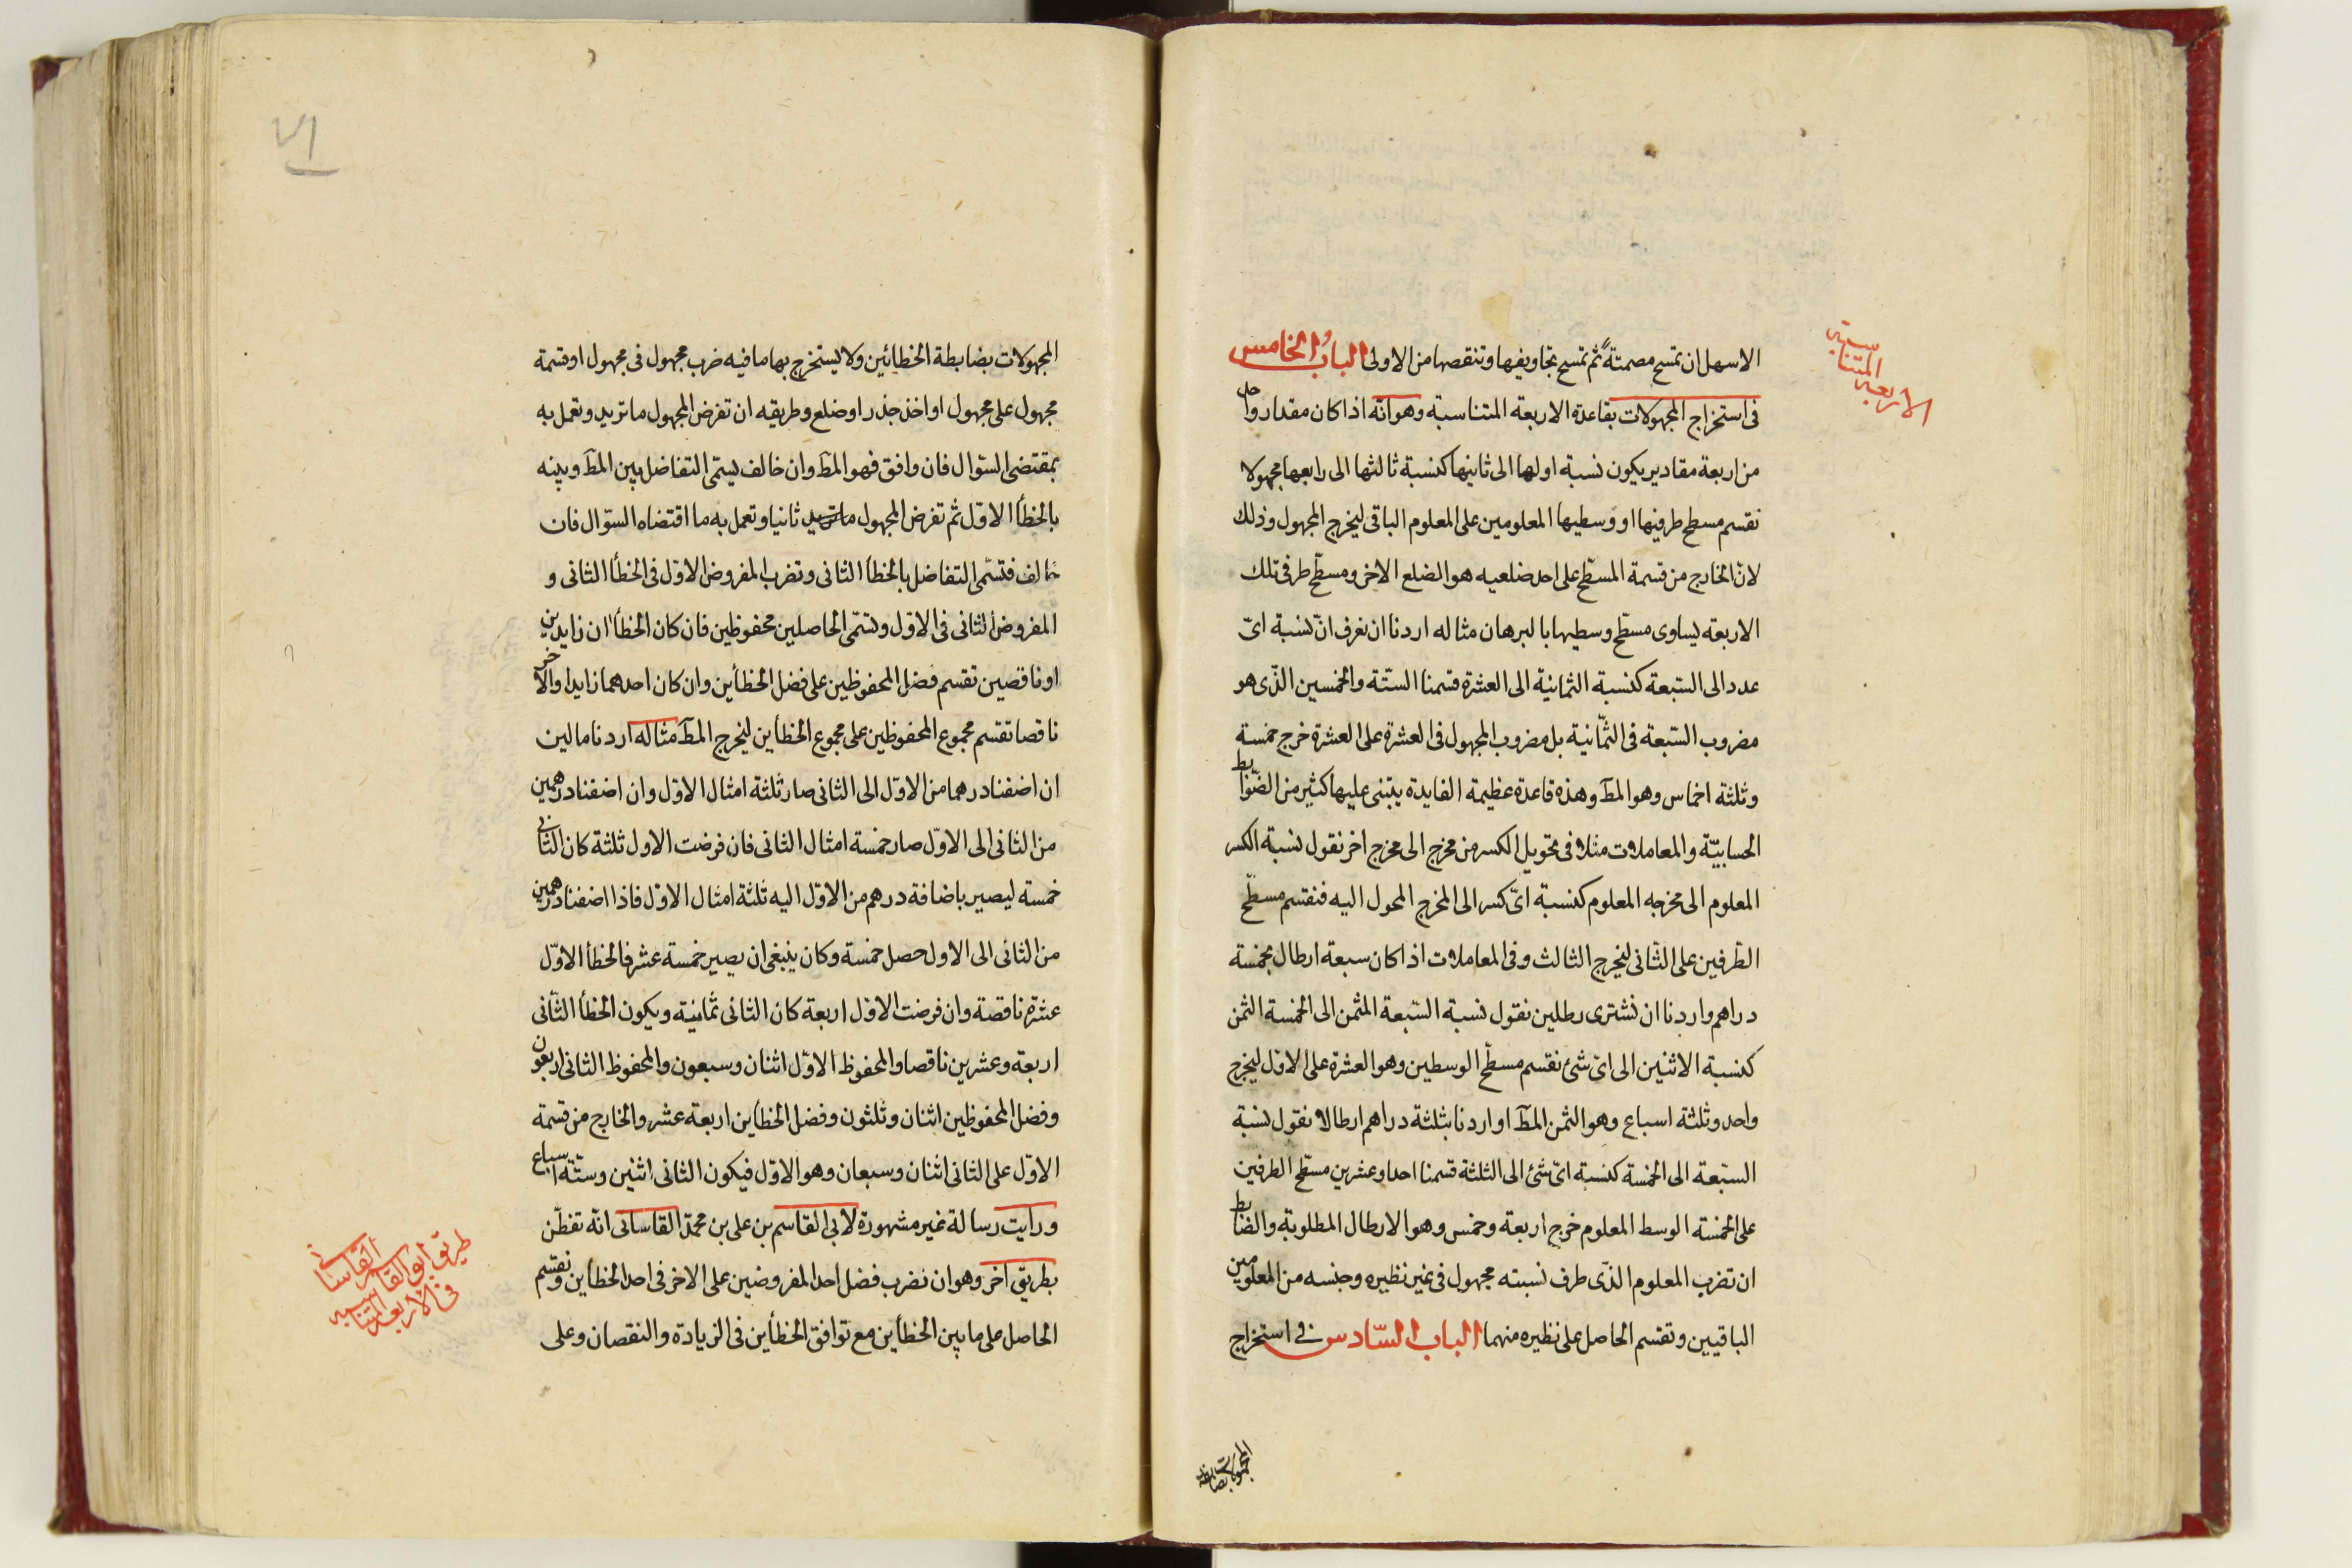 الاسهل ان تمسح مصمتة ثم تمسح تجاويفها وتنقصها من الاولى الباب الخامس
فى استخراج المجهولات بقاعدة الاربعة المتناسبة وهو انّه اذا كان مقدار واحد
من اربعة مقادير يكون نسبة اولها الى ثانيها كنسبة ثالثها الى رابعها مجهولا
نقسم مسطح طرفيها او وسطيها المعلومين على المعلوم الباقى ليخرج المجهول وذلك
لانّ الخارج من قسمة المسطّح على احد ضلعيه هو الضلع الاخر ومسطّح طرفى تلك
الاربعة يساوى مسطّح وسطيها بالبرهان مثاله اردنا ان نعرف انّ نسبة اىّ
عدد الى السّبعة كنسبة الثمانية الى العشرة قسمنا الستّة والخمسين الذّى هو
مضروب السّبعة فى الثّمانية بل مضروب المجهول فى العشرة على العشرة خرج خمسة
وثلثة اخماس وهو المطّ وهذه قاعدة عظيمة الفايدة يبتنى عليها كثير من الضّوابط
الحسابيّة والمعاملات مثلا فى تحويل الكسر من مخرج الى مخرج اخر نقول نسبة الكسر
المعلوم الى مخرجه المعلوم كنسبة اىّ كسر الى المخرج المحول اليه فنقسم مسطّح
الطّرفين على الثّانى ليخرج الثالث وفى المعاملات اذا كان سبعة ارطال بخمسة
دراهم واردنا ان نشترى رطلين نقول نسبة السّبعة المثمن الى الخمسة الثمن
كنسبة الاثنين الى اىّ شئ نقسم مسطّح الوسطين وهو العشرة على الاوّل ليخرج
واحد وثلثة اسباع وهو الثمن المطّ او اردنا بثلثة دراهم ارطالا نقول نسبة
السّبعة الى الخمسة كنسبة اىّ شئ الى الثلثة قسمنا احدا وعشرين مسطّح الطرفين
على الخمسة الوسط المعلوم خرج اربعة وخمس وهو الارطال المطلوبة والضابط
ان تضرب المعلوم الذّى طرف نسبته مجهول فى غير نظيره وجنسه من المعلومين
الباقيين وتقسم الحاصل على نظيره منهما الباب السّادس فى استخراج
المجهولات بضابطة
الاربعة
المتناسبة
المجهولات بضابطة الخطائين ولا يستخرج بها ما فيه ضرب مجهول فى مجهول او قسمة
مجهول على مجهول او اخذ جذر او ضلع وطريقه ان تفرض المجهول ما تريد وتعمل به
بمقتضى السّوال فان وافق فهو المطّ وان خالف يسمّى التفاضل بين المطّ وبينه
بالخطأ الاوّل ثم تفرض المجهول ما تريد ثانيا وتعمل به ما اقتضاه السّوال فان
خالف فتسمّى التفاضل بالخطأ الثانى وتضرب المفروض الاوّل فى الخطأ الثانى و
المفروض الثانى فى الاوّل وتسمّى الحاصلين محفوظين فان كان الخطأان زايدين
او ناقصين تقسم فضل المحفوظين على فضل الخطأين وان كان احدهما زايدا والاخر
ناقصا تقسم مجموع المحفوظين على مجموع الخطأين ليخرج المطّ مثاله اردنا مالين
ان اضفنا درهما من الاوّل الى الثانى صار ثلثة امثال الاوّل وان اضفنا درهمين
من الثانى الى الاوّل صار خمسة امثال الثانى فان فرضت الاول ثلثة كان الثانى
خمسة ليصير باضافة درهم من الاوّل اليه ثلثة امثال الاوّل فاذا اضفنا درهمين
من الثانى الى الاول حصل خمسة وكان ينبغى ان يصير خمسة عشر فالخطأ الاوّل
عشرة ناقصة وان فرضت الاوّل اربعة كان الثانى ثمانية ويكون الخطأ الثّانى
اربعة وعشرين ناقصا والمحفوظ الاوّل اثنان وسبعون والمحفوظ الثانى اربعون
وفضل المحفوظين اثنان وثلثون وفضل الخطأين اربعة عشر والخارج من قسمة
الاوّل على الثانى اثنان وسبعان وهو الاوّل فيكون الثانى اثنين وستّة اسباع
ورايت رسالة غير مشهورة لابى القاسم بن على بن محمّد القاسانى انّه تفطّن
بطريق آخر وهو ان نضرب فضل احد المفروضين على الاخر فى احد الخطأين ونقسم
الحاصل على ما بين الخطأين مع توافق الخطأين فى الزيادة والنقصان وعلى
طريق ابو القاسم القاسانى
فى الاربعة المتناسبة
٧١